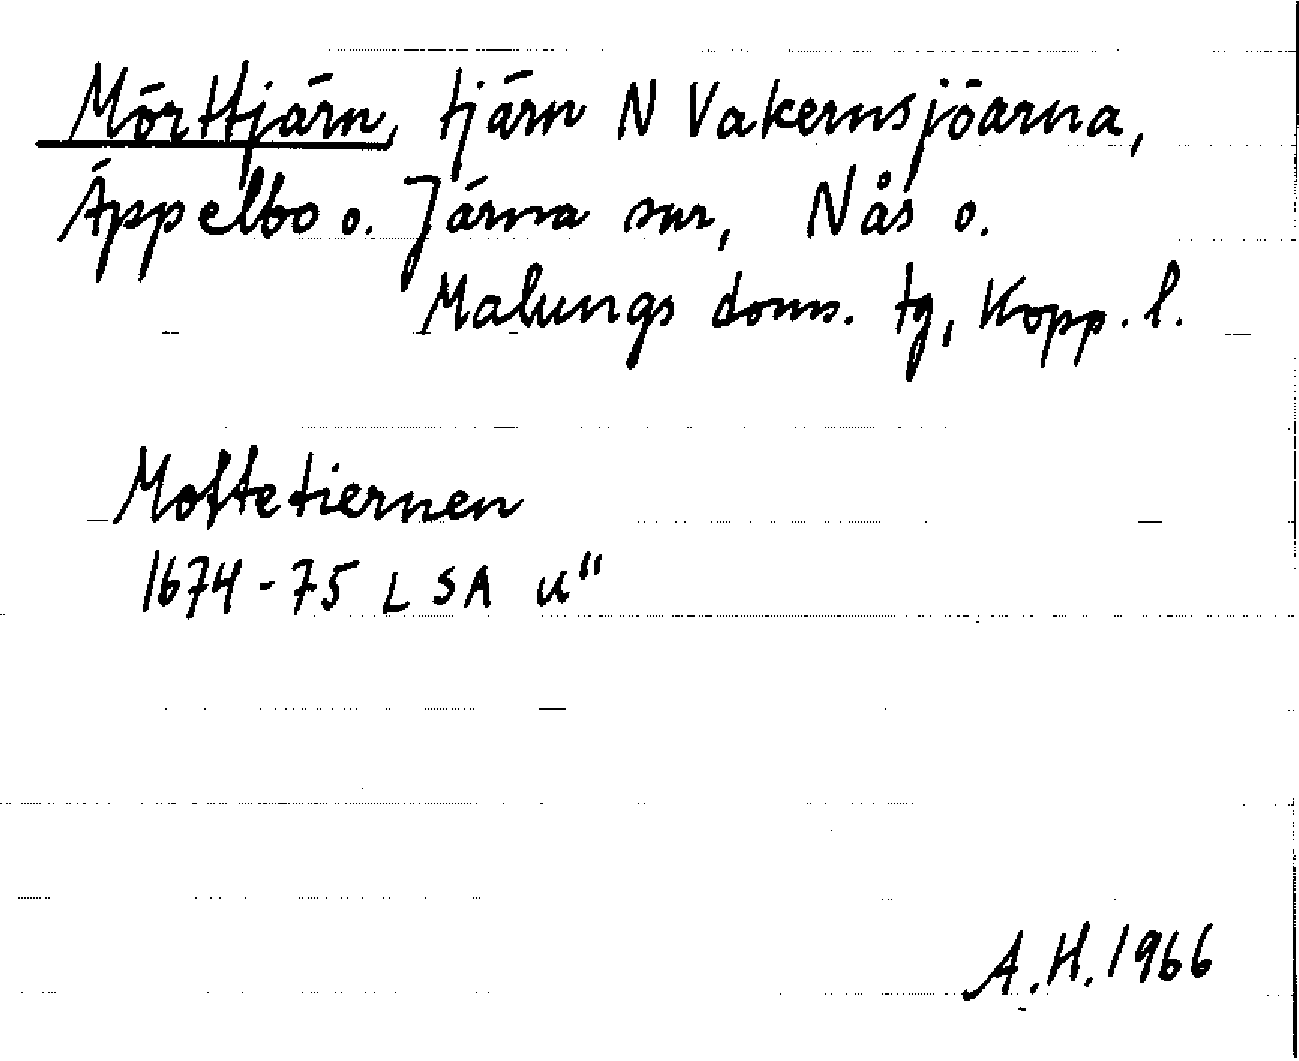 Mörttjärn, tjärn N Vakernsjöarna,
Äppelbo o. Järna snr, Nås o.
Malungs doms. tg, Kopp. l.
Moftetiernen
1674-75 LSA u"
A.H. 1966